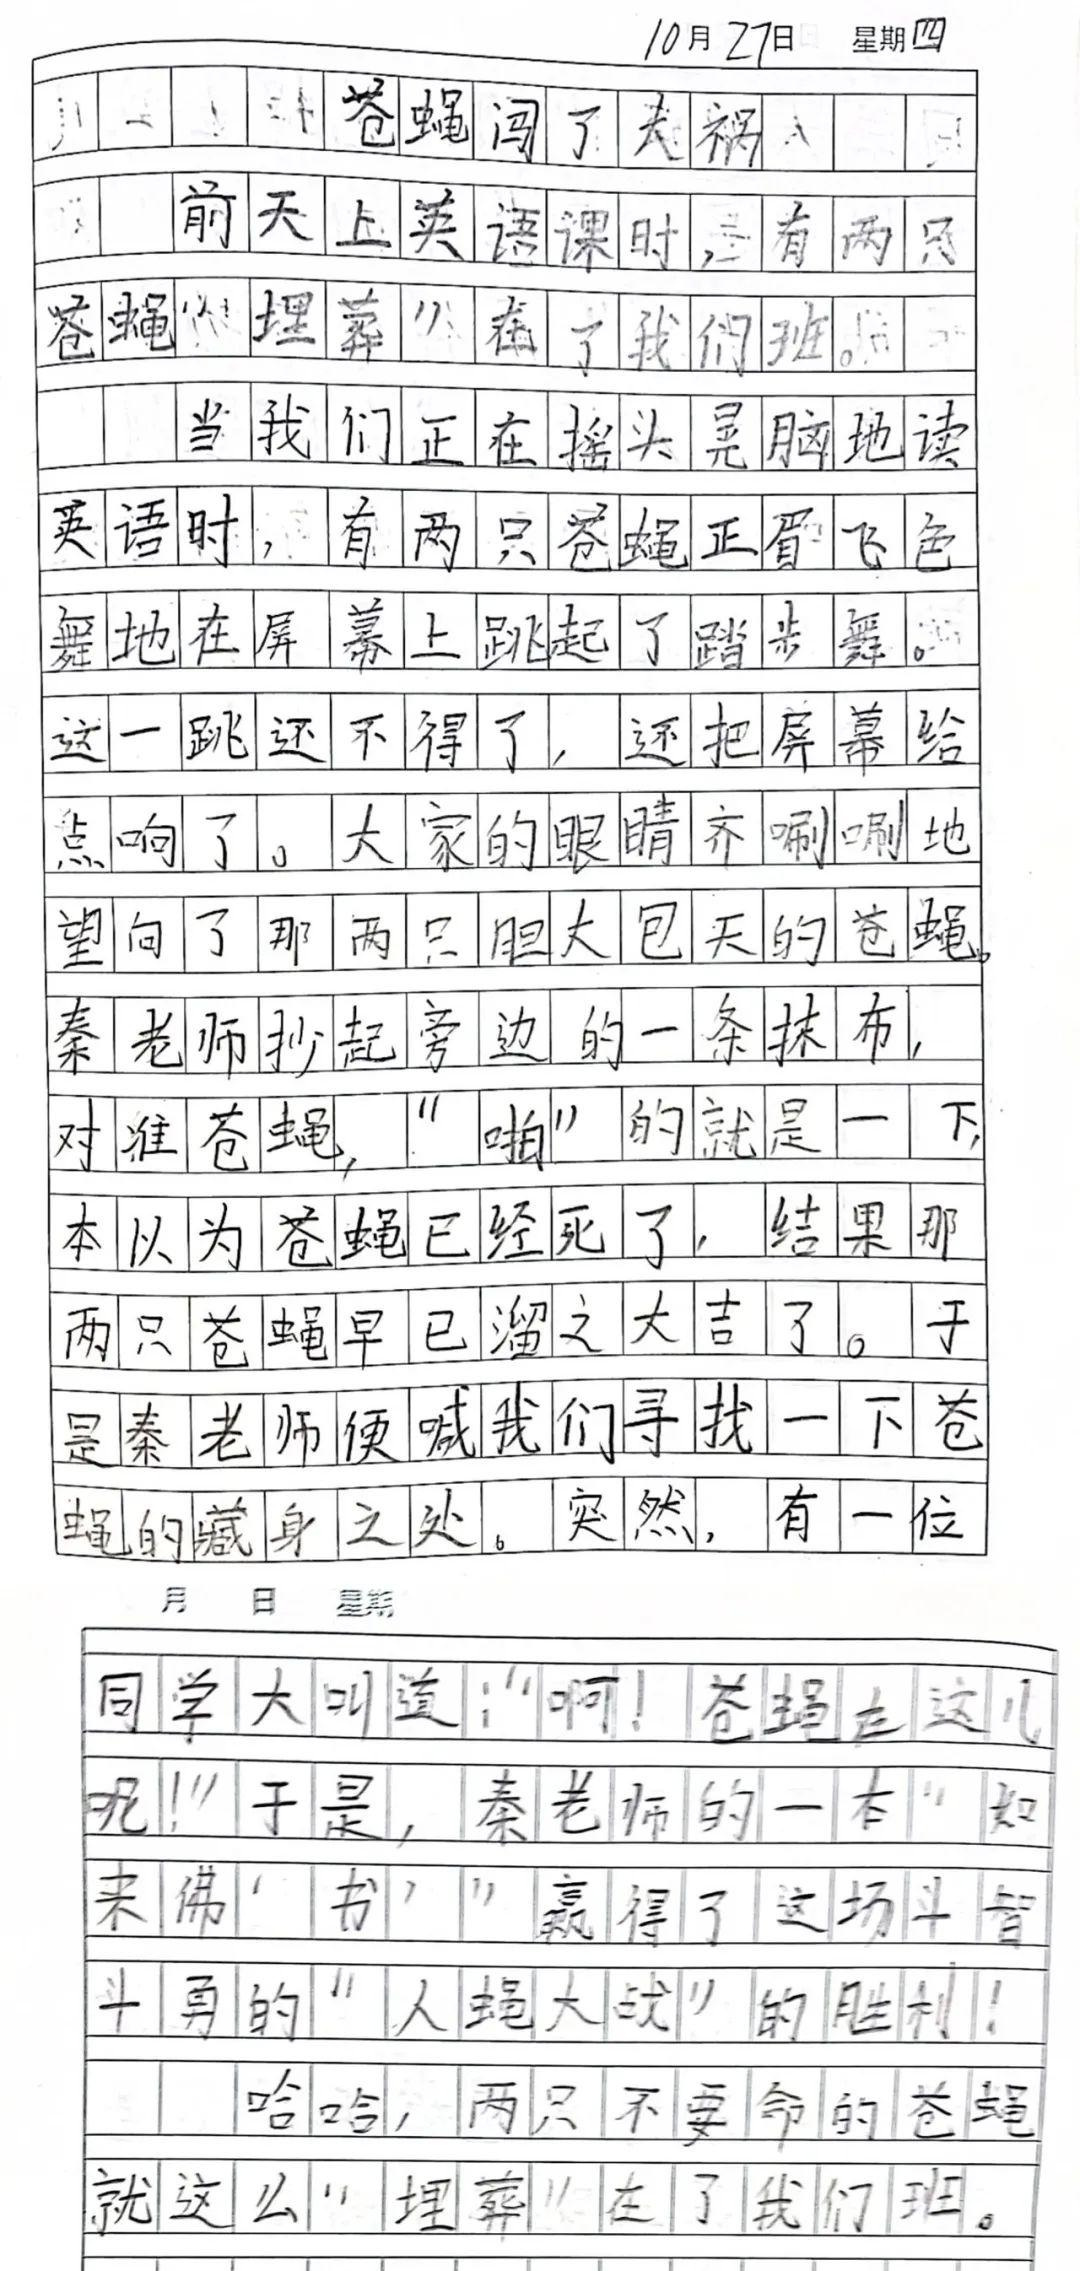 10月27日 星期四
苍蝇闯了大祸
前天上英语课时,有两只
苍蝇“埋葬”在了我们班。
当我们正在摇头晃脑地读
英语时,有两只苍蝇正眉飞色
舞地在屏幕上跳起了踏步舞。
这一跳还不得了,还把屏幕给
点响了。大家的眼睛齐唰唰地
望向了那两只胆大包天的苍蝇。
秦老师抄起旁边的一条抹布,
对准苍蝇,“啪”的就是一下,
本以为苍蝇已经死了,结果那
两只苍蝇早已溜之大吉了。于
是秦老师便喊我们寻找一下苍
蝇的藏身之处。突然,有一位
月 日 星期
同学大叫道:“啊!苍蝇在这儿
呢!”于是,秦老师的一本“如
来佛‘书’”赢得了这场斗智
斗勇的“人蝇大战”的胜利!
哈哈,两只不要命的苍蝇
就这么“埋葬”在了我们班。